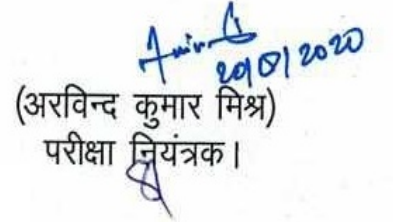 20/8/2020
(अरविन्द कुमार मिश्र)
परीक्षा नियंत्रक।